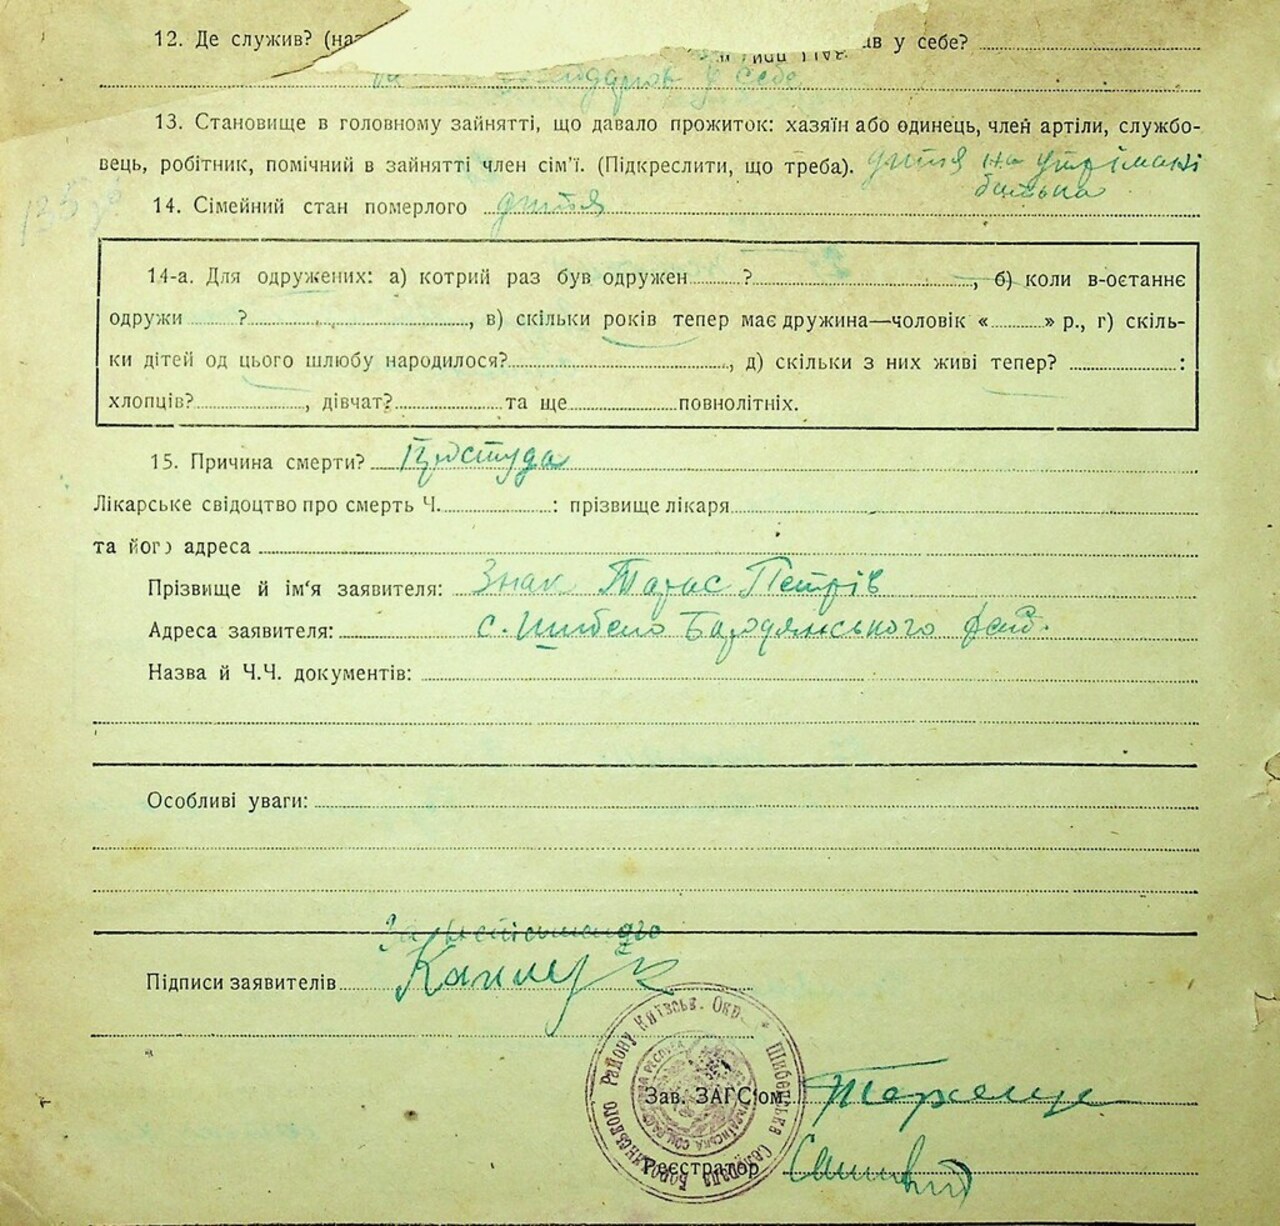 12. Де служив? (наз ав у себе?
господарог у себе
13. Становище в головному зайнятті, що давало прожиток: хазяїн або одинець, член артіли, службо-
вець, робітник, помічний в зайнятті член сім'ї. (Підкреслити, що треба). дитя на утрімані
батька
14. Сімейний стан померлого дитя
14-а. Для одружених: а) котрий раз був одружен ? , б) коли в-останнє
одружи ? , в) скільки років тепер має дружина—чоловік « » р., г) скіль-
ки дітей од цього шлюбу народилося? , д) скільки з них живі тепер? :
хлопців? , дівчат? та ще повнолітніх.
15. Причина смерти? Простуда
Лікарське свідоцтво про смерть Ч. : прізвище лікаря
та його адреса
Прізвище й ім'я заявителя: Знак Тарас Петрів
Адреса заявителя: с. Шибено Бородянського рай.
Назва й Ч.Ч. документів:
Особливі уваги:
За неписьменого
Підписи заявителів
Бородянського Району Київськ. Окр. Шибенська Сільрада
Українська Соц. Рад. Республіка
Зав. ЗАГС'ом:
Реєстратор